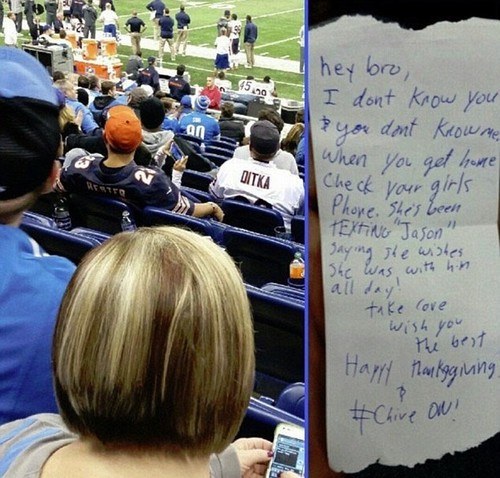 45
80
HESTER
2
DITKA
hey bro,
I dont know you
& you dont know me,
when you get home
check your girls
Phone. She's been
tEXting "Jason"
saying she wishes
she was with him
all day!
take care
wish you
the best
Happy thanksgiving
&
#Chive ON!